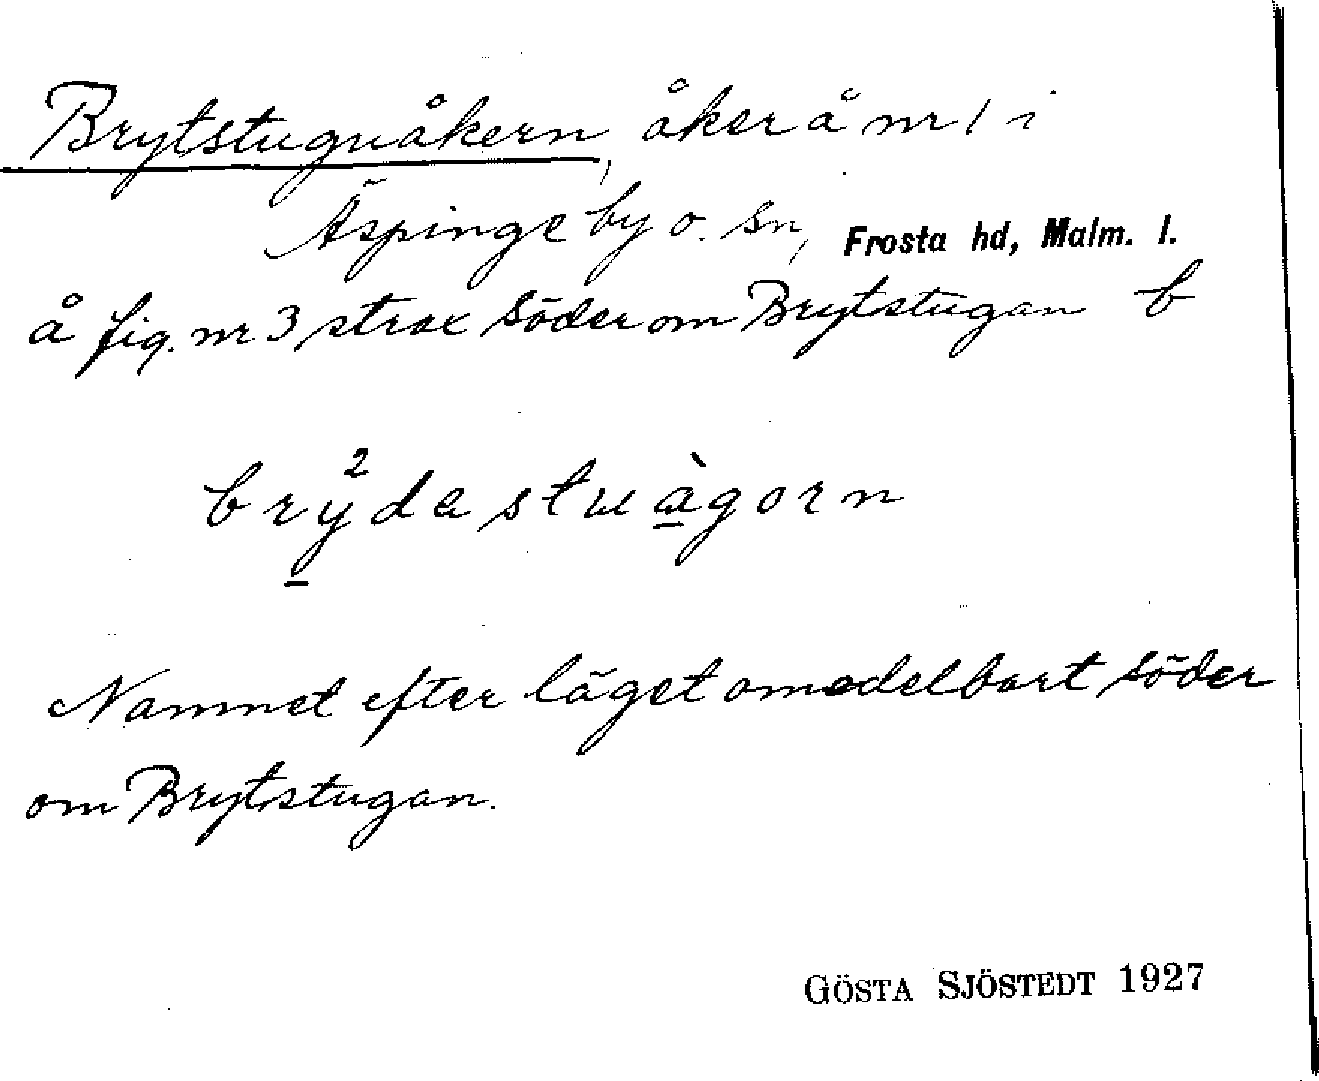 Brytstuguåkern, åker å nr 1 i
Äspinge by o. sn, Frosta hd, Malm. l.
å fig. nr 3 strax söder om Brytstugan b
brÿ²dastuàgorn
Namnet efter läget omedelbart söder
om Brytstugan.
GÖSTA SJÖSTEDT 1927